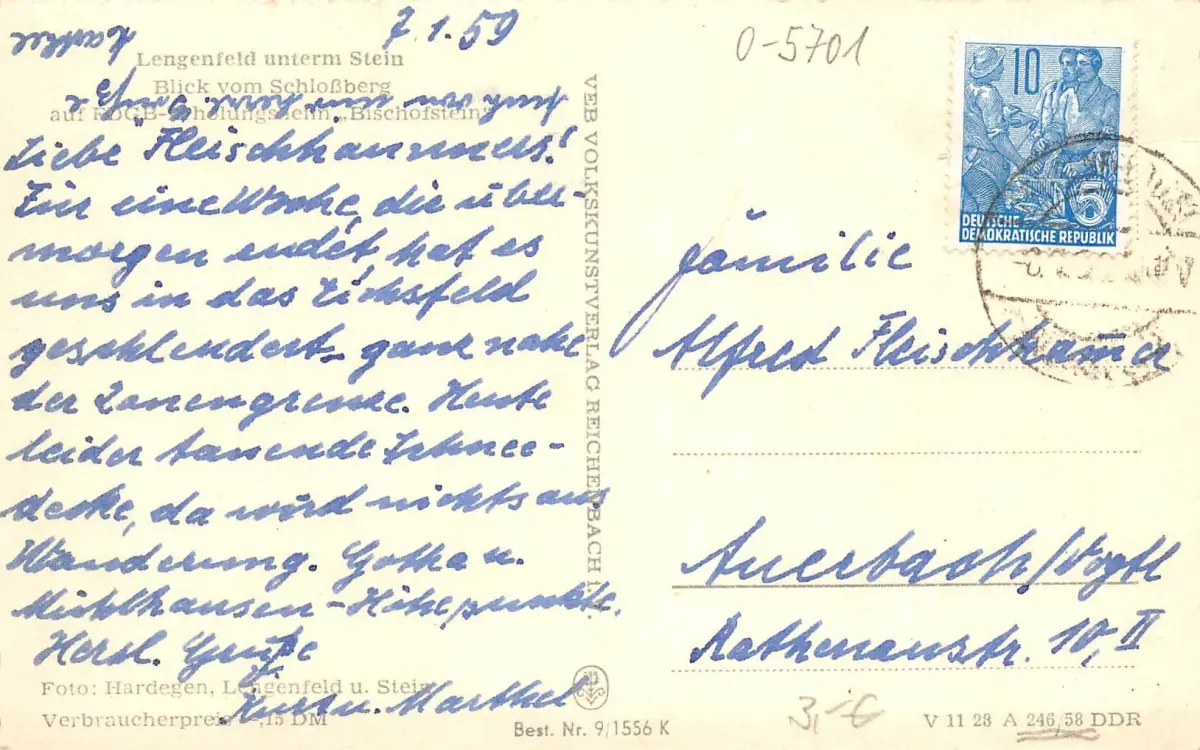 7.1.59
0-5701
Lengenfeld unterm Stein
Blick vom Schloßberg
auf FDGB-Erholungsheim „Bischofstein"
Liebe Fleischhauers!
Für eine Woche, die über-
morgen endet hat es
uns in das Eichsfeld
geschleudert, ganz nahe
der Zonengrenze. Heute
leider tauende Schnee-
decke, da wird nichts aus
Wanderung. Gotha u.
Mühlhausen - Höhepunkte.
Herzl. Grüße
Kurt u. Marthel
Foto: Hardegen, Lengenfeld u. Stein
Verbraucherpreis -,15 DM
VEB VOLKSKUNSTVERLAG REICHENBACH i. V.
Best. Nr. 9/1556 K
10
5
DEUTSCHE
DEMOKRATISCHE REPUBLIK
Familie
Alfred Fleischhauer
Auerbach/Vogtl
Rathenaustr. 10, II
3,-€
V 11 28 A 246/58 DDR